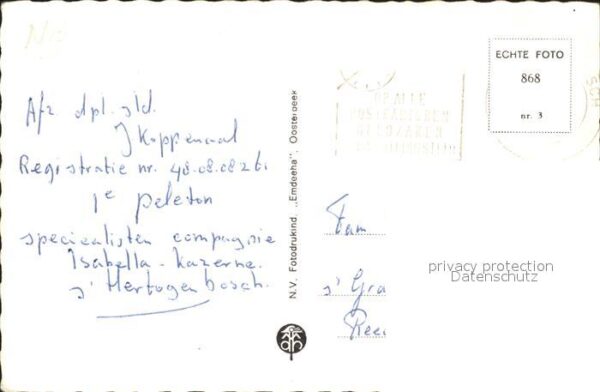 Afz dpl. sld.
J Koppenaal
Registratie nr. 48.08.08.261
1e peleton
specialisten compagnie
Isabella-Kazerne.
s' Hertogenbosch.
N.V. Fotodrukind. „Emdeeha”, Oosterbeek
ECHTE FOTO
868
nr. 3
OP ALLE
POSTPAPIEREN
Fam
s' Gra
privacy protection
Datenschutz